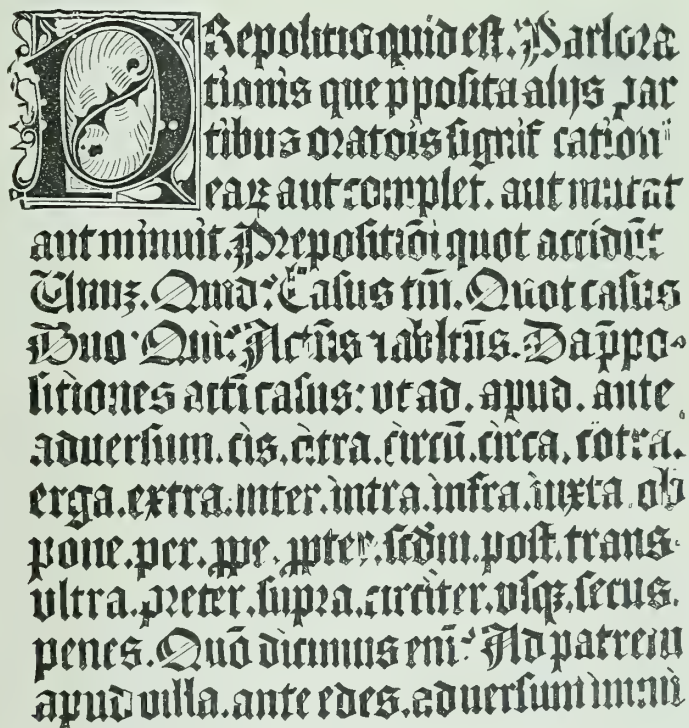 PRepositio quid est. Pars ora
tionis que pposita alijs par
tibus oratois signif cation
earꝝ aut complet. aut mutat
aut minuit. Prepositiõi quot accidũt
Unuz. Quid? Casus tm̃. Quot casus
Duo Qui? Actũs ⁊ abltũs. Da p̃po-
sitiones acti casus: vt ad. apud. ante
aduersum. cis. citra. circũ. circa. cõtra.
erga. extra. inter. intra. infra. iuxta. ob
pone. per. ꝓpe. ꝓpter. scdm̃. post. trans.
vltra. preter. supra. circiter. vsqꝫ. secus.
penes. Quõ dicimus eni? Ad patrem
apud villa. ante edes. aduersum inimi